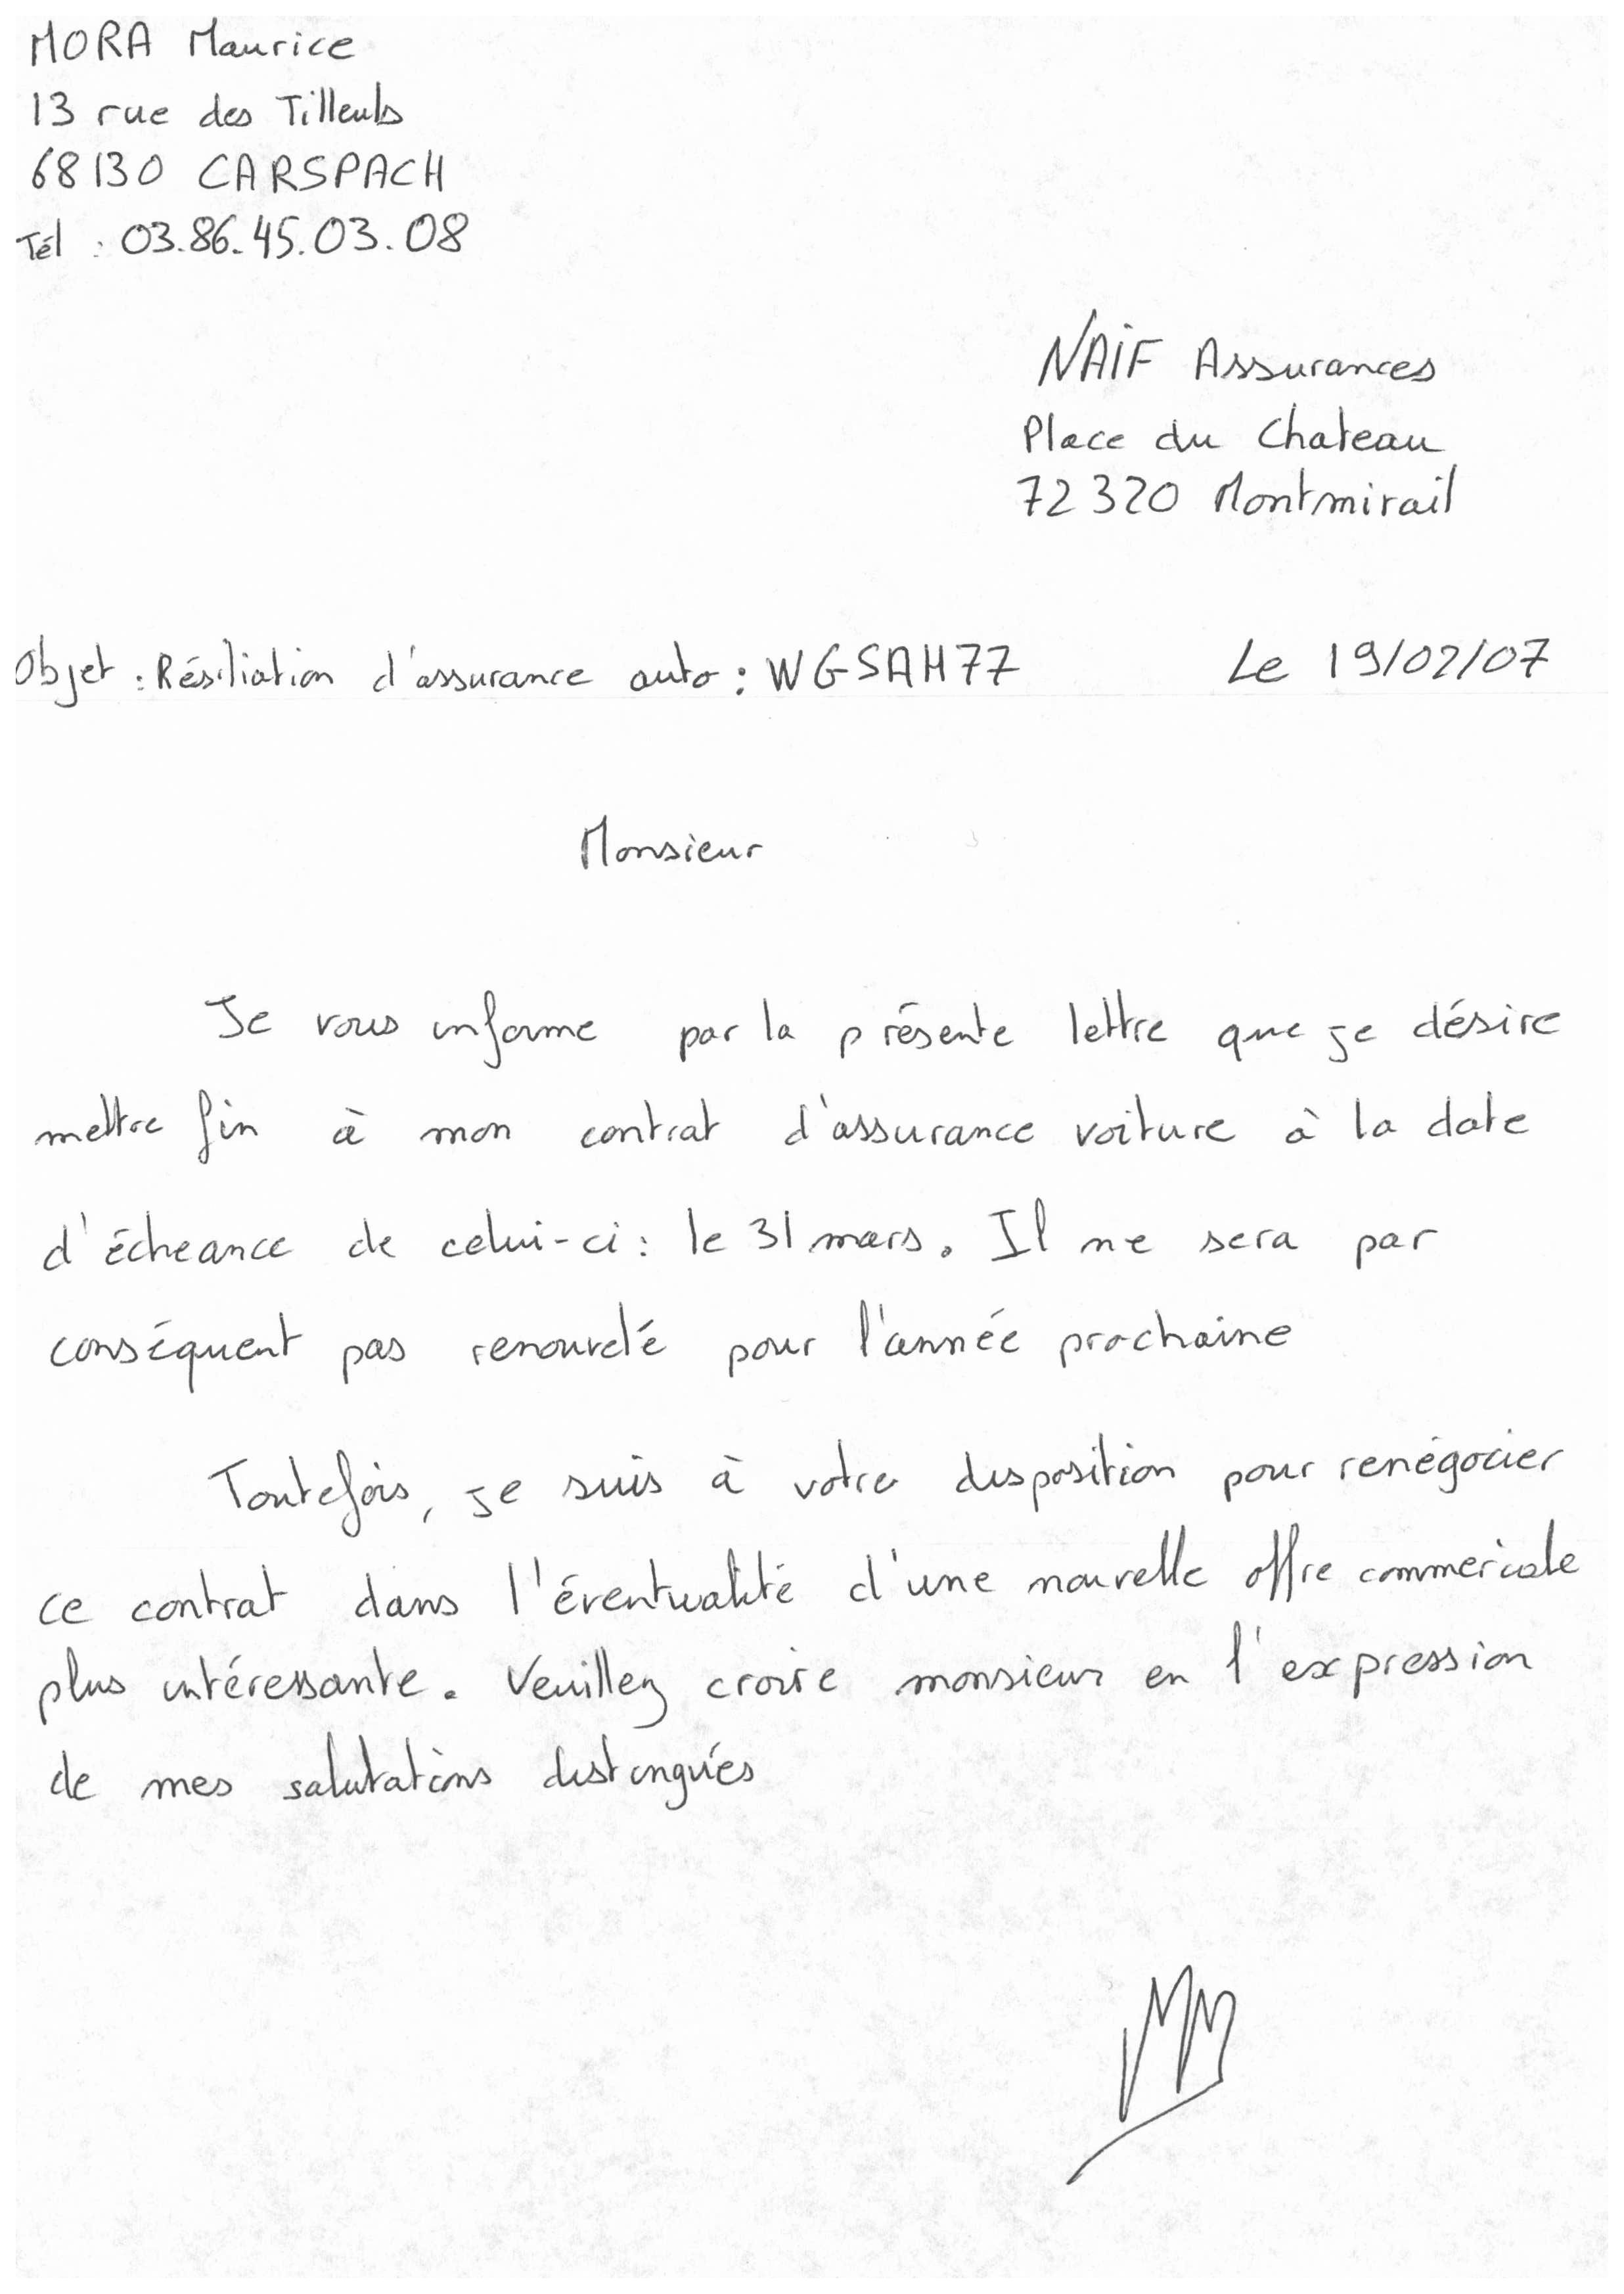 MORA Maurice
13 rue des Tilleuls
68130 CARSPACH
Tél : 03.86.45.03.08
NAIF Assurances
Place du Chateau
72320 Montmirail
Objet : Résiliation d'assurance auto : WGSAH77 Le 19/02/07
Monsieur
Je vous informe par la présente lettre que je désire
mettre fin à mon contrat d'assurance voiture à la date
d'écheance de celui-ci : le 31 mars. Il ne sera par
conséquent pas renouvelé pour l'année prochaine
Toutefois, je suis à votre disposition pour renégocier
ce contrat dans l'éventualité d'une nouvelle offre commericale
plus intéressante. Veuillez croire monsieur en l'expression
de mes salutations distinguées